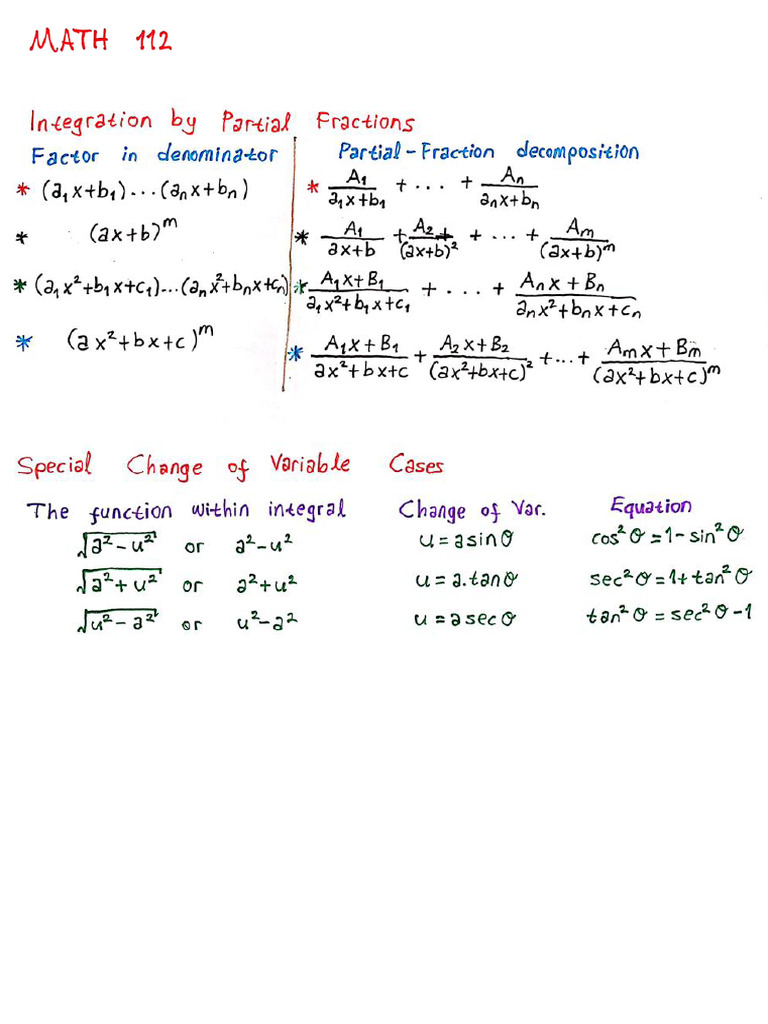 MATH 112
Integration by Partial Fractions
Factor in denominator | Partial-Fraction decomposition
* (a₁x+b₁)...(aₙx+bₙ) | * A₁/(a₁x+b₁) + ... + Aₙ/(aₙx+bₙ)
* (ax+b)^m | * A₁/(ax+b) + A₂/(ax+b)² + ... + Aₘ/(ax+b)^m
* (a₁x²+b₁x+c₁)...(aₙx²+bₙx+cₙ) | * (A₁x+B₁)/(a₁x²+b₁x+c₁) + ... + (Aₙx+Bₙ)/(aₙx²+bₙx+cₙ)
* (ax²+bx+c)^m | * (A₁x+B₁)/(ax²+bx+c) + (A₂x+B₂)/(ax²+bx+c)² + ... + (Aₘx+Bₘ)/(ax²+bx+c)^m
Special Change of Variable Cases
The function within integral Change of Var. Equation
√(a²-u²) or a²-u² u=asinθ cos²θ=1-sin²θ
√(a²+u²) or a²+u² u=a.tanθ sec²θ=1+tan²θ
√(u²-a²) or u²-a² u=asecθ tan²θ=sec²θ-1